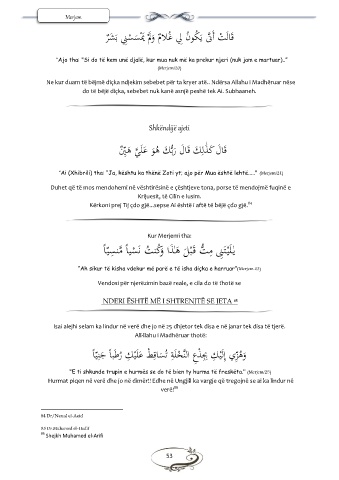 Merjem
قَالَتْ أَنَّىٰ يَكُونُ لِي غُلَامٌ وَلَمْ يَمْسَسْنِي بَشَرٌ
"Ajo tha: "Si do të kem unë djalë, kur mua nuk më ka prekur njeri (nuk jam e martuar).."
(Merjem:20)
Ne kur duam të bëjmë diçka ndjekim sebebet për ta kryer atë.. Ndërsa Allahu i Madhëruar nëse
do të bëjë diçka, sebebet nuk kanë asnjë peshë tek Ai. Subhaneh.
Shkëndijë ajeti
قَالَ كَذَٰلِكَ قَالَ رَبُّكَ هُوَ عَلَيَّ هَيِّنٌ
"Ai (Xhibrili) tha: "Ja, kështu ka thënë Zoti yt: ajo për Mua është lehtë...." (Merjem:21)
Duhet që të mos mendohemi në vështirësinë e çështjeve tona, porse të mendojmë fuqinë e
Krijuesit, të Cilin e lusim.
Kërkoni prej Tij çdo gjë...sepse Ai është i aftë të bëjë çdo gjë.84
Kur Merjemi tha:
يَٰلَيْتَنِي مِتُّ قَبْلَ هَٰذَا وَكُنتُ نَسْياً مَّنسِيّاً
"Ah sikur të kisha vdekur më parë e të isha diçka e harruar"(Merjem :23)
Vendosi për njerëzimin bazë reale, e cila do të thotë se
NDERI ËSHTË MË I SHTRENJTË SE JETA 85
Isai alejhi selam ka lindur në verë dhe jo në 25 dhjetor tek disa e në janar tek disa të tjerë.
All-llahu i Madhëruar thotë:
وَهُزِّي إِلَيْكِ بِجِذْعِ النَّخْلَةِ تُسَاقِطْ عَلَيْكِ رُطَباً جَنِيّاً
"E ti shkunde trupin e hurmës se do të bien ty hurma të freskëta." (Merjem:25)
Hurmat piqen në verë dhe jo në dimër!! Edhe në Ungjill ka vargje që tregojnë se ai ka lindur në
verë!86
84 Dr/Naual el-Aid
85 Dr.Muhamed el-
86 Shejkh Muhamed el-Arifi
53